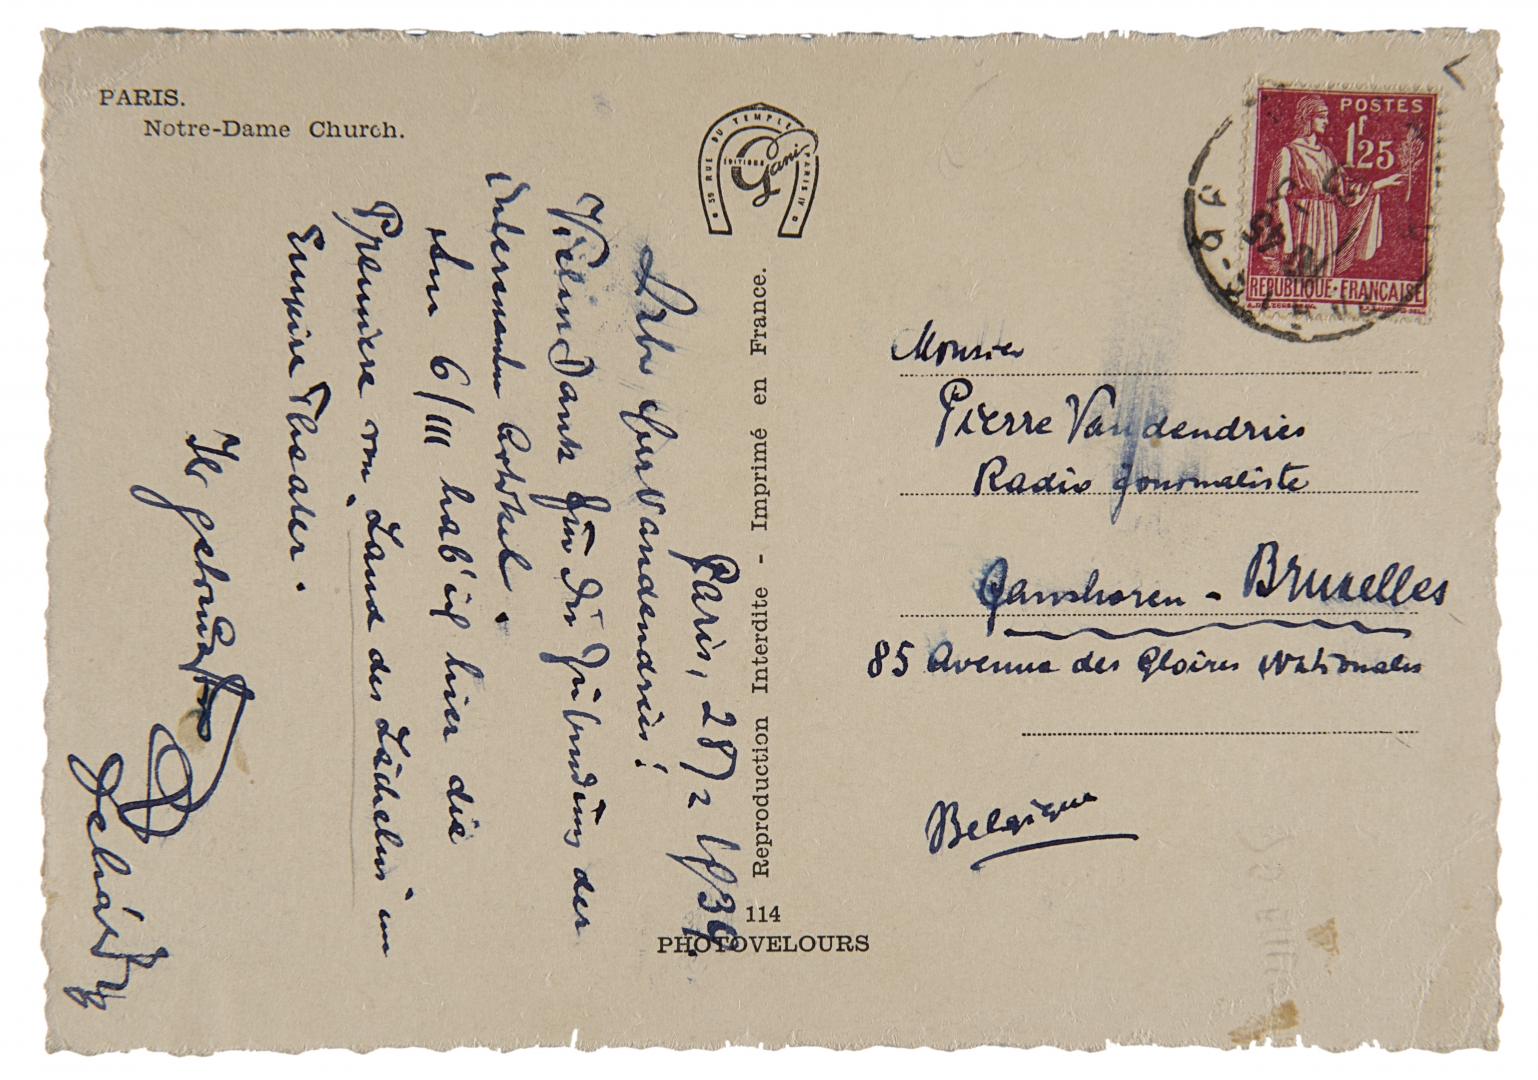 PARIS.
Notre-Dame Church.
59 RUE DU TEMPLE PARIS IV
EDITIONS
Gani
Paris, 28/2 1939.
Lieber Herr Vandendries!
Vielen Dank für die Zusendung der
interessanten Artikel.
Am 6/III hab' ich hier die
Premiere von „Land des Lächelns" im
Empire Theater.
Ihr
Lehár
Reproduction Interdite - Imprimé en France.
114
PHOTOVELOURS
POSTES
1f25
REPUBLIQUE·FRANÇAISE
Monsier
Pierre Vandendries
Radio journaliste
Ganshoren - Bruxelles
85 Avenue des Gloires Nationales
Belgique